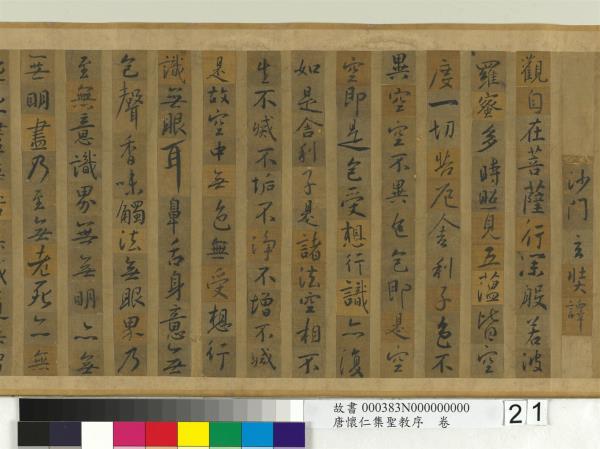 沙門玄奘譯
觀自在菩薩行深般若波
羅蜜多時照見五蘊皆空
度一切苦厄舍利子色不
異空空不異色色即是空
空即是色受想行識亦復
如是舍利子是諸法空相不
生不滅不垢不淨不增不減
是故空中無色無受想行
識無眼耳鼻舌身意無
色聲香味觸法無眼界乃
至無意識界無無明亦無
無明盡乃至無老死亦無
故書 000383N000000000
唐懷仁集聖教序 卷
21